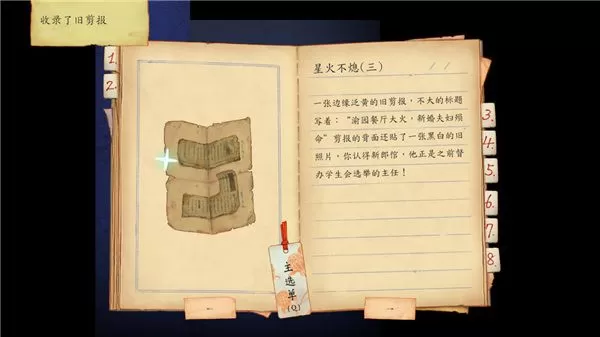 收录了旧剪报
1.
2.
星火不熄(三)
一张边缘泛黄的旧剪报，不大的标题
写着：“渝园餐厅大火，新婚夫妇殒
命”剪报的背面还贴了一张黑白的旧
照片，你认得新郎倌，他正是之前督
办学生会选举的主任！
3.
4.
5.
6.
7.
8.
主选单
(Q)
←
→